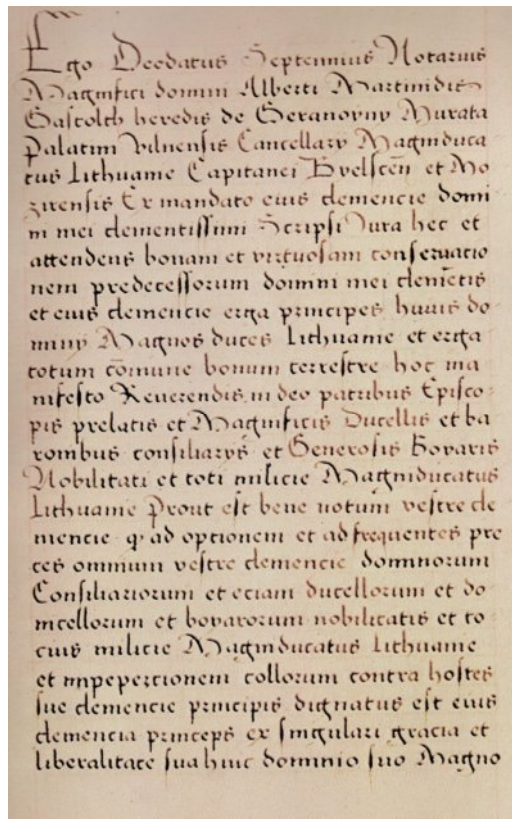 Ego Deodatus Septennius Notarius
Magnifici domini Alberti Martinidis
Gastolth heredis de Geranoyny Murata
palatini Vilnensis Cancellarÿ Magniduca
tus Lithuanie Capitanei Byelsceñ et Mo
zirensis Ex mandato eius clemencie domi
ni mei clementissimi Scripsi Jura hec et
attendens bonam et virtuosam conseruatio
nem predecessorum domini mei clemētis
et eius clemencie erga principes huius do
miny Magnos duces Lithuanie et erga
totum cōmune bonum terrestre hoc ma
nifesto Reuerendis in deo patribus Episco
pis prelatis et Magnificis Ducellis et ba
ronibus consiliarÿs et Generosis Boyaris
Nobilitati et toti milicie Magniducatus
Lithuanie Prout est bene notum vestre cle
mencie ꝙ ad optionem et ad frequentes pre
ces omnium vestre clemencie dominorum
Consiliariorum et eciam ducellorum et do
micellorum et boyarorum nobilitatis et to
cius milicie Magniducatus Lithuanie
et inpepercionem collorum contra hostes
sue clemencie principis dignatus est eius
clemencia princeps ex singulari gracia et
liberalitate sua huic dominio suo Magno